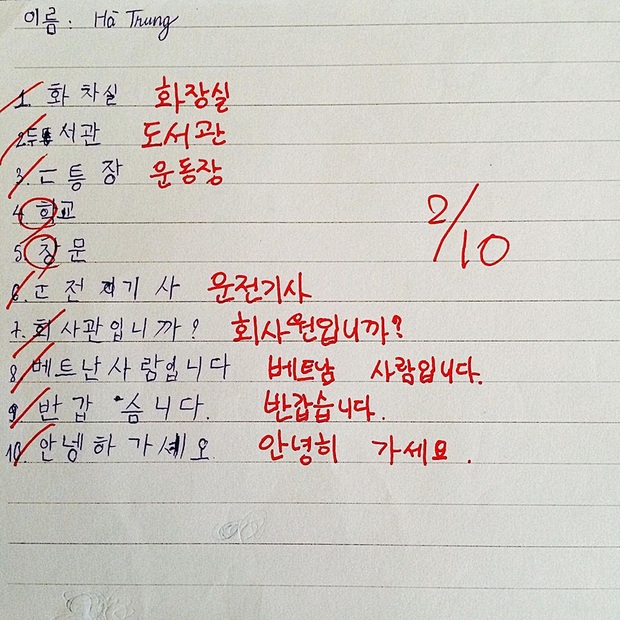 이름: Hà Trung
1. 화차실 화장실
서관 도서관
3. ㅡ등장 운동장
4. 학교
5. 창문
2/10
6. 전기사 운전기사
7. 회사관입니까? 회사원입니까?
8. 베트난사람입니다 베트남 사람입니다.
9. 반갑숨니다. 반갑습니다.
10. 안넹하가세오 안녕히 가세요.